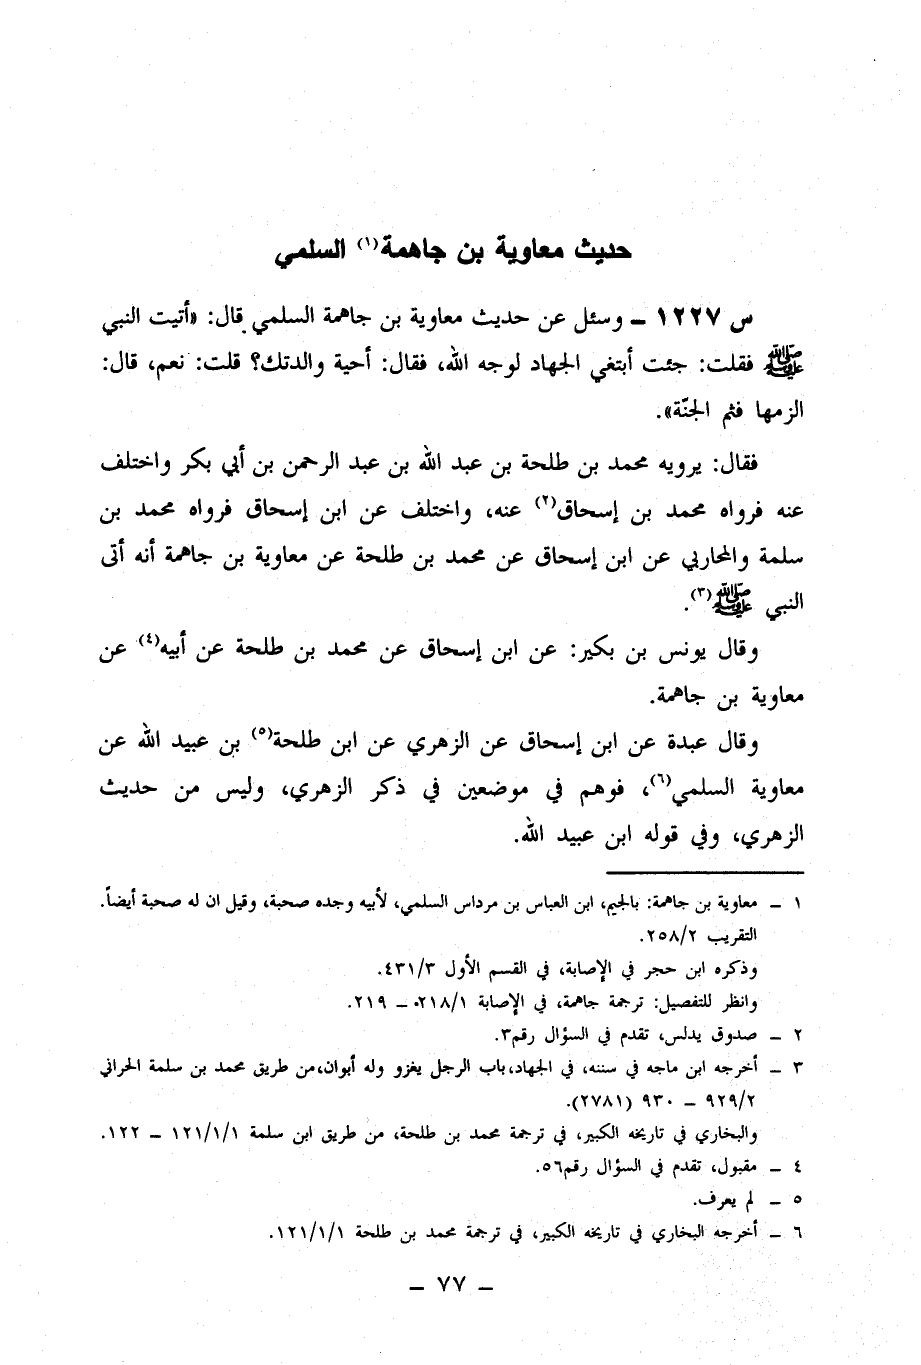 حديث معاوية بن جاهمة(١) السلمي
س ١٢٢٧ ـ وسئل عن حديث معاوية بن جاهمة السلمي قال: «أتيت النبي
ﷺ فقلت: جئت أبتغي الجهاد لوجه الله، فقال: أحية والدتك؟ قلت: نعم، قال:
الزمها فثم الجنّة».
فقال: يرويه محمد بن طلحة بن عبد الله بن عبد الرحمن بن أبي بكر واختلف
عنه فرواه محمد بن إسحاق(٢) عنه، واختلف عن ابن إسحاق فرواه محمد بن
سلمة والمحاربي عن ابن إسحاق عن محمد بن طلحة عن معاوية بن جاهمة أنه أتى
النبي ﷺ(٣).
وقال يونس بن بكير: عن ابن إسحاق عن محمد بن طلحة عن أبيه(٤) عن
معاوية بن جاهمة.
وقال عبدة عن ابن إسحاق عن الزهري عن ابن طلحة(٥) بن عبيد الله عن
معاوية السلمي(٦)، فوهم في موضعين في ذكر الزهري، وليس من حديث
الزهري، وفي قوله ابن عبيد الله.
١ ـ معاوية بن جاهمة: بالجيم، ابن العباس بن مرداس السلمي، لأبيه وجده صحبة، وقيل ان له صحبة أيضاً.
التقريب ٢٥٨/٢.
وذكره ابن حجر في الإصابة، في القسم الأول ٤٣١/٣.
وانظر للتفصيل: ترجمة جاهمة، في الإصابة ٢١٨/١ ـ ٢١٩.
٢ ـ صدوق يدلس، تقدم في السؤال رقم٣.
٣ ـ أخرجه ابن ماجه في سننه، في الجهاد،باب الرجل يغزو وله أبوان،من طريق محمد بن سلمة الحراني
٩٢٩/٢ ـ ٩٣٠ (٢٧٨١).
والبخاري في تاريخه الكبير، في ترجمة محمد بن طلحة، من طريق ابن سلمة ١٢١/١/١ ـ ١٢٢.
٤ ـ مقبول، تقدم في السؤال رقم٥٦.
٥ ـ لم يعرف.
٦ ـ أخرجه البخاري في تاريخه الكبير، في ترجمة محمد بن طلحة ١٢١/١/١.
ـ ٧٧ ـ